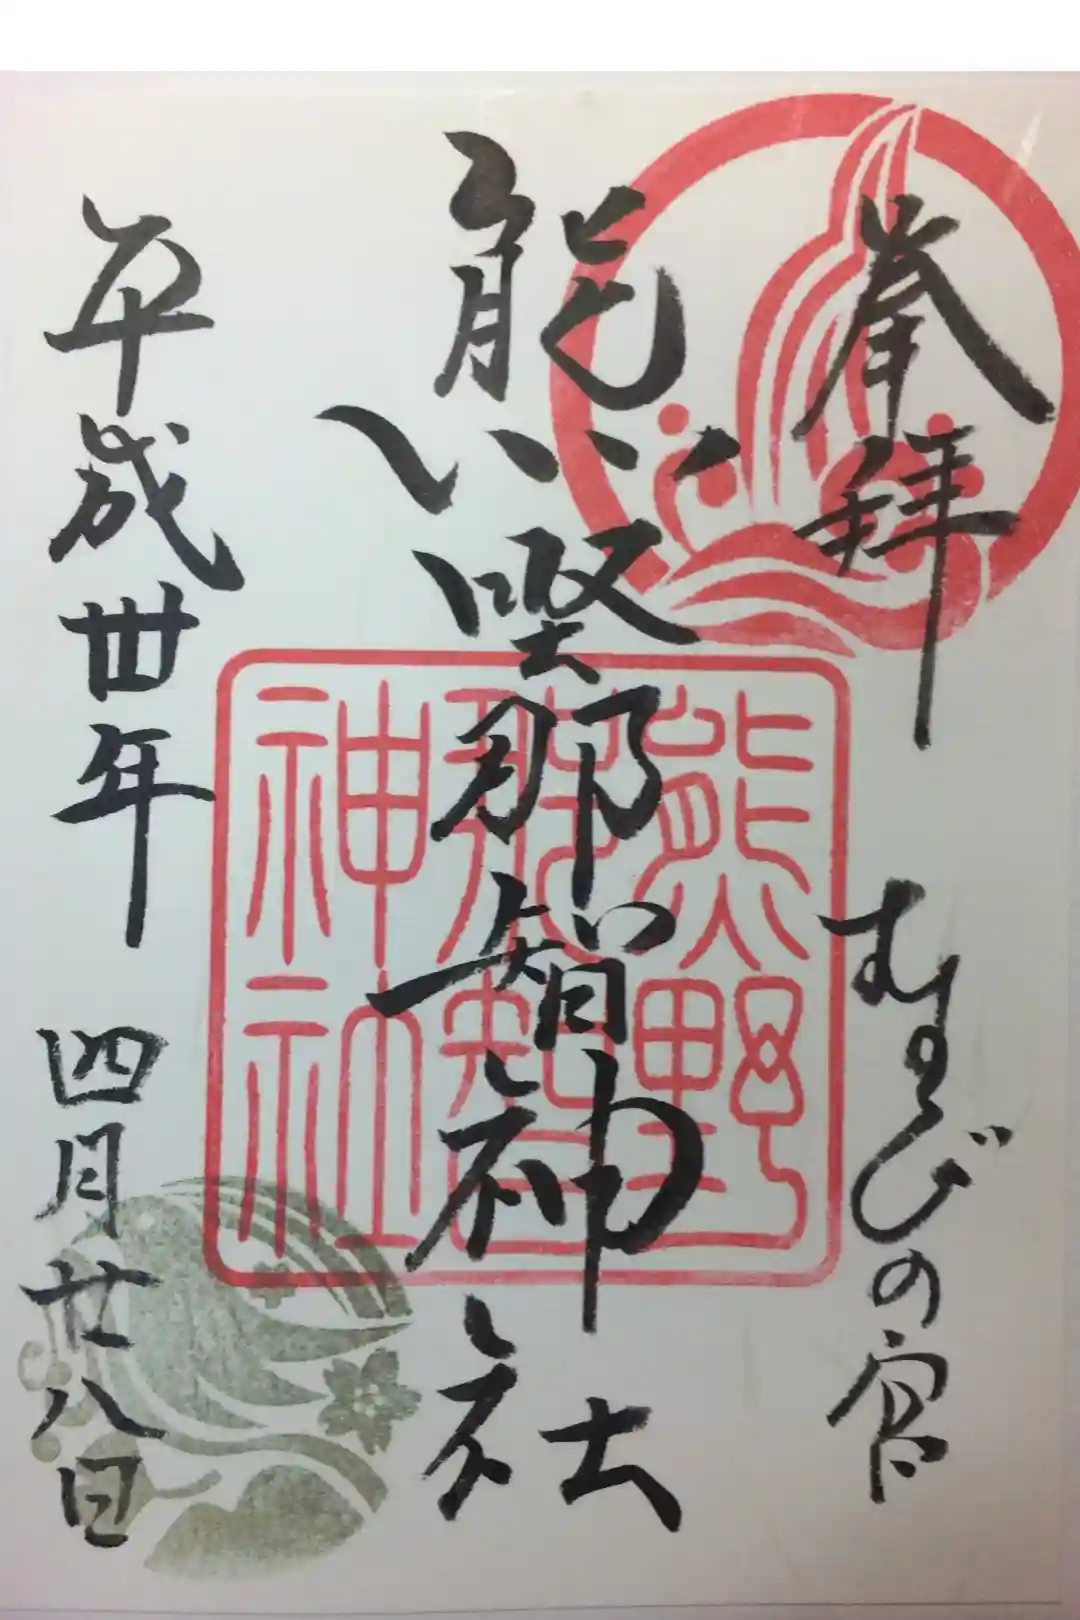 奉拝
むすびの宮
熊野那智神社
平成丗年
四月廿八日
熊野
那智
神社